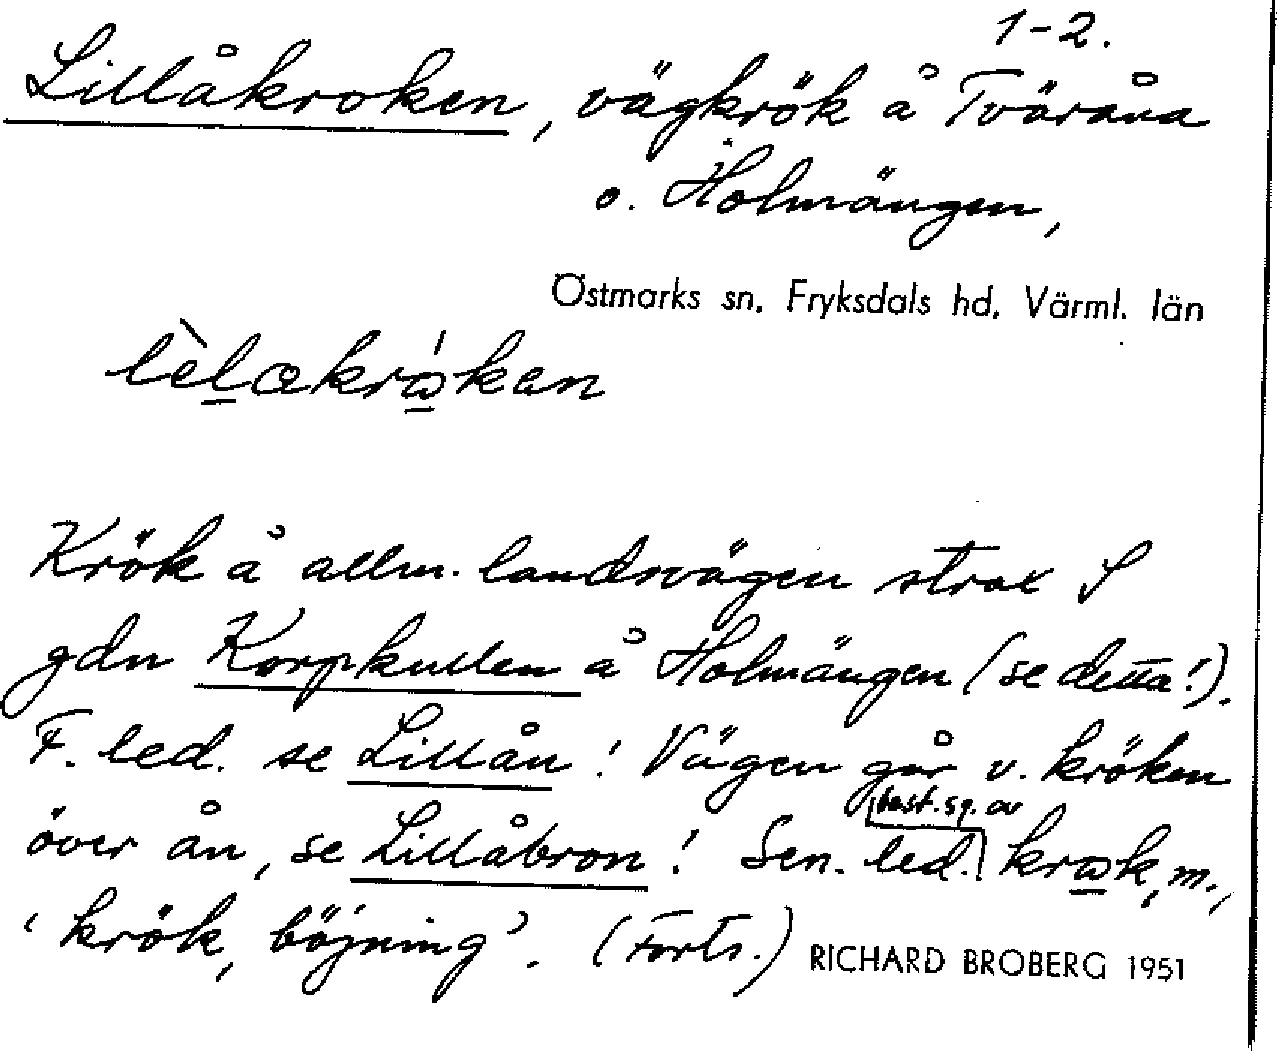 1-2.
Lillåkroken, vägkrök å Tväråna
o. Holmängen,
Östmarks sn. Fryksdals hd. Värml. län
Krök å allm. landsvägen strax S
gdn Korpkullen å Holmängen (se detta!).
F. led. se Lillån! Vägen går v. kröken
över ån, se Lillåbron! Sen. led. best. sg. av krɷk, m.,
'krök, böjning'. (Forts.)
RICHARD BROBERG 1951